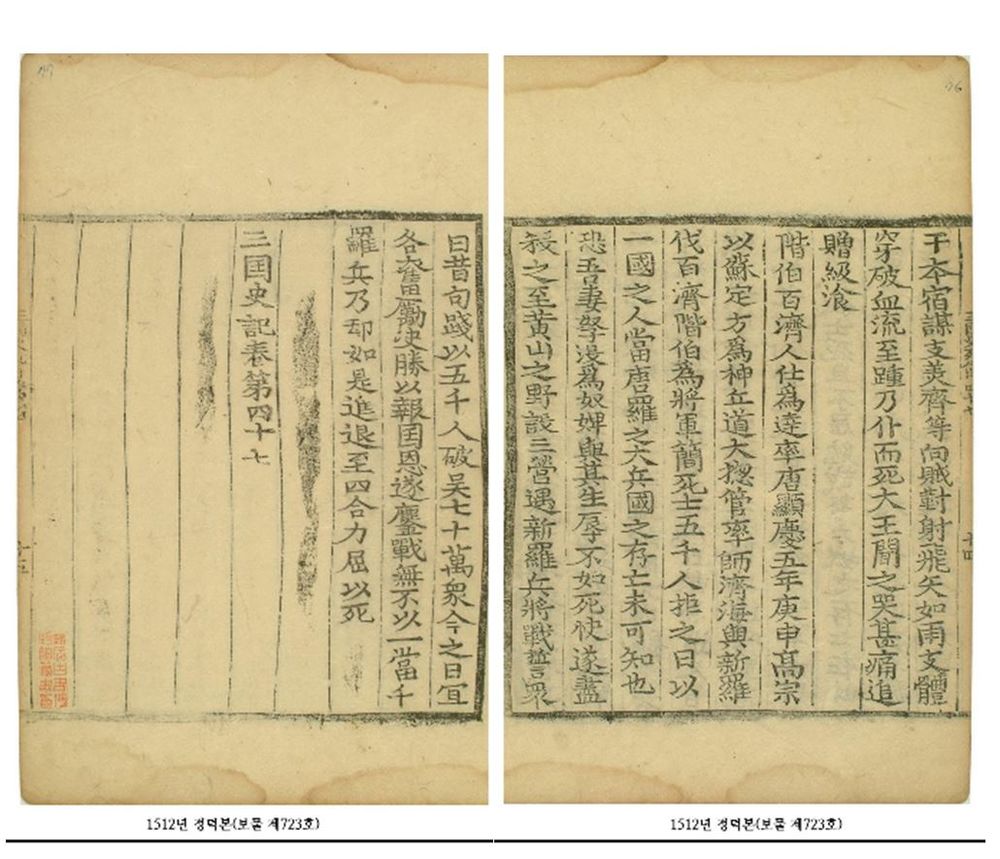 干本宿謀支羙齊等向賊對射飛矢如雨支體
穿破血流至踵乃仆而死大王聞之哭甚痛追
贈級飡
階伯百濟人仕爲達率唐顯慶五年庚申髙宗
以蘇定方爲神丘道大揔管率師濟海與新羅
伐百濟階伯爲將軍簡死士五千人拒之曰以
一國之人當唐羅之大兵國之存亡未可知也
恐吾妻孥没爲奴婢與其生辱不如死快遂盡
殺之至黄山之野設三營遇新羅兵將戰誓衆
曰昔句踐以五千人破吳七十萬衆今之日宜
各奮勵決勝以報囯恩遂鏖戰無不以一當千
羅兵乃却如是進退至四合力屈以死
三囯史記卷第四十七
1512년 정덕본(보물 제723호)
1512년 정덕본(보물 제723호)